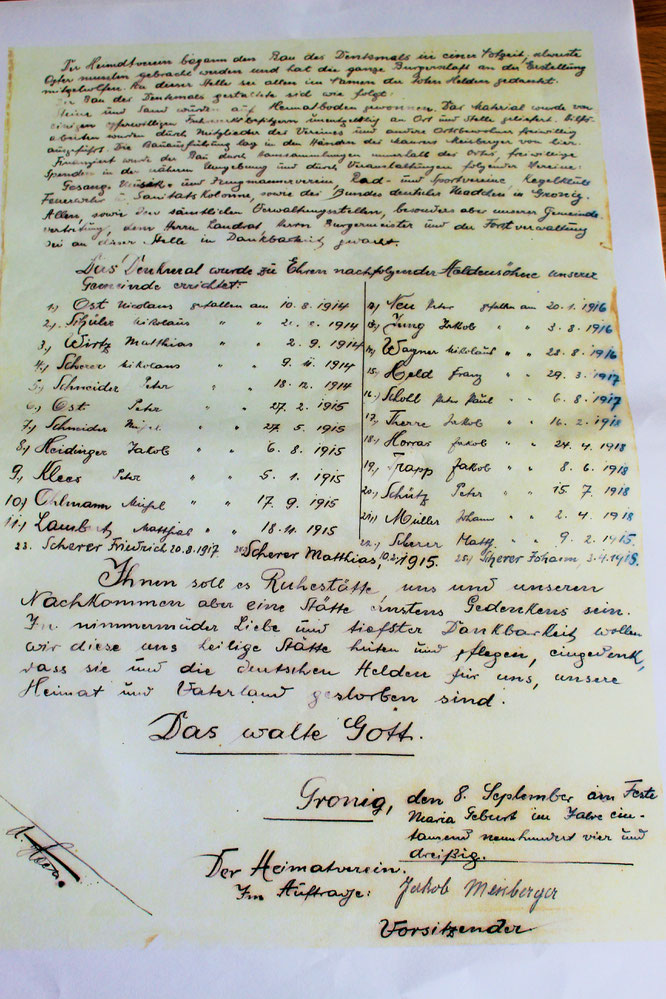 Der Heimatverein begann den Bau des Denkmals in einer Notzeit. schwerste
Opfer mussten gebracht werden und hat die ganze Bürgerschaft an der Erstellung
mitgeholfen. An dieser Stelle sei allen im Namen der toten Helden gedankt.
Der Bau des Denkmals gestaltete sich wie folgt:
Steine und Sand wurde auf Heimatboden gewonnen. Das Material wurde von
einigen opferwilligen Fuhrwerksbesitzern unentgeltlich an Ort und Stelle geliefert. Hilfs-
arbeiten wurden durch Mitglieder des Vereines und andere Ortsbewohner freiwillig
ausgeführt. Die Bauausführung lag in den Händen des Maurers Meisberger von hier.
Finanziert wurde der Bau durch Haussammlungen innerhalb des Ortes, freiwillige
Spenden in der nähern Umgebung und durch Veranstaltungen folgender Vereine:
Gesang- Musik- und Jungmännerverein, Rad- und Sportverein, Kegelklub
Feuerwehr u. Sanitätskolonne, sowie des Bundes deutscher Mädchen in Gronig.
Allen, sowie den sämtlichen Verwaltungsstellen, besonders aber unserer Gemeinde-
vertretung, dem Herrn Landrat, Herrn Bürgermeister und der Forstverwaltung
sei an dieser Stelle in Dankbarkeit gedacht.
Das Denkmal wurde zu Ehren nachfolgender Heldensöhne unserer
Gemeinde errichtet:
1.) Ost Nicolaus gefallen am 10. 8. 1914
2.) Schüler Nikolaus " " 8. 1914
3.) Wirtz Matthias " " 2. 9. 1914
4.) Scherer Nikolaus " " 9. 11. 1914
5.) Schneider Peter " " 18. 12. 1914
6.) Ost Peter " " 27. 2. 1915
7.) Schneider Michel " " 27. 5. 1915
8.) Heidinger Jakob " " 6. 8. 1915
9.) Klees Peter " " 5. 1. 1915
10.) Ohlmann Michel " " 17. 9. 1915
11.) Lambert Matthias " " 18. 11. 1915
12.) Neu Peter gefallen am 20. 1. 1916
13.) Jung Jakob " " 3. 8. 1916
14.) Wagner Nikolaus " " 28. 8. 1916
15.) Held Franz " " 29. 3. 1917
16.) Scholl Peter Paul " " 6. 8. 1917
17.) Therre Jakob " " 16. 2. 1918
18.) Horras Jakob " " 24. 4. 1918
19.) Trapp Jakob " " 8. 6. 1918
20.) Schütz Peter " " 15. 7. 1918
21.) Müller Johann " " 2. 4. 1918
22.) Scherer Matth. " " 9. 2. 1915
23. Scherer Friedrich 20.8.1917 24. Scherer Matthias, 10.2.1915. 25. Scherer Johann, 3.4.1918.
Ihnen soll es Ruhestätte, uns und unseren
Nachkommen aber eine Stätte ernstens Gedenkens sein.
In nimmermüder Liebe und tiefster Dankbarkeit wollen
wir diese uns heilige Stätte hüten und pflegen, eingedenk,
dass sie und die deutschen Helden für uns, unsere
Heimat und Vaterland gestorben sind.
Das walte Gott.
Gronig, den 8. September am Feste
Maria Geburt im Jahre ein-
tausend neunhundert vier und
dreißig.
Der Heimatverein.
Im Auftrage: Jakob Meisberger
Vorsitzender